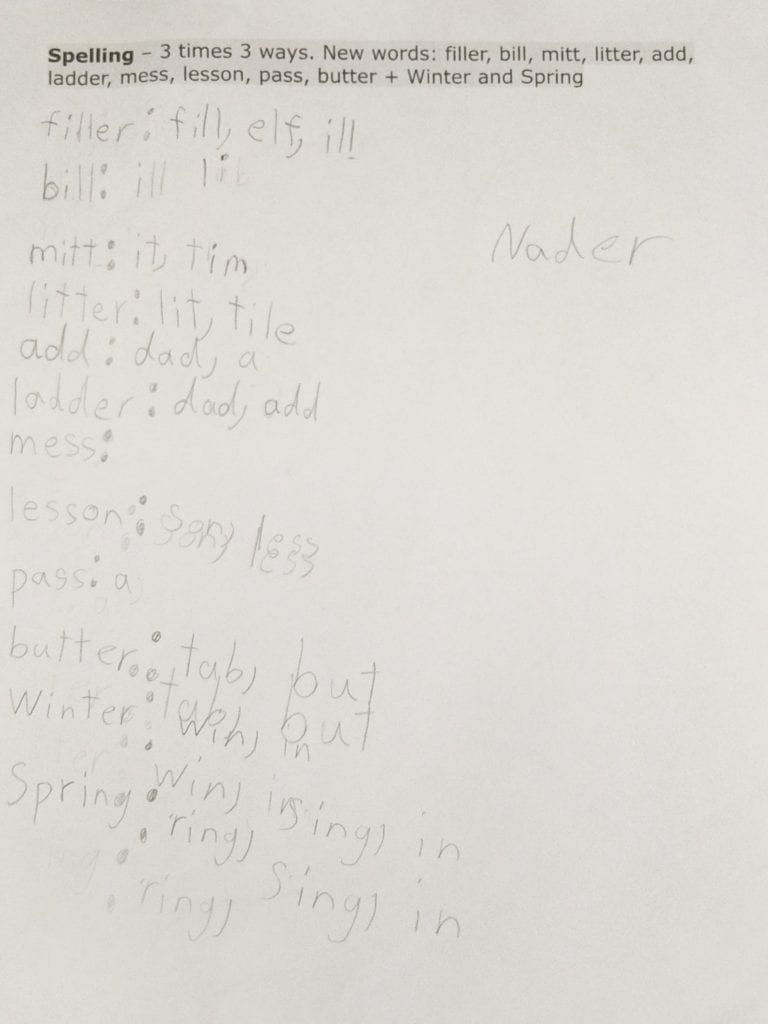 Spelling – 3 times 3 ways. New words: filler, bill, mitt, litter, add,
ladder, mess, lesson, pass, butter + Winter and Spring
filler: fill, elf, ill
bill: ill
mitt: it, tim
Nader
litter: lit, tile
add: dad, a
ladder: dad, add
mess:
lesson: son, less
pass: a
butter: tab, but
Winter: tab, but
win, in
Spring: win, in
ring, sing, in
ring, sing, in